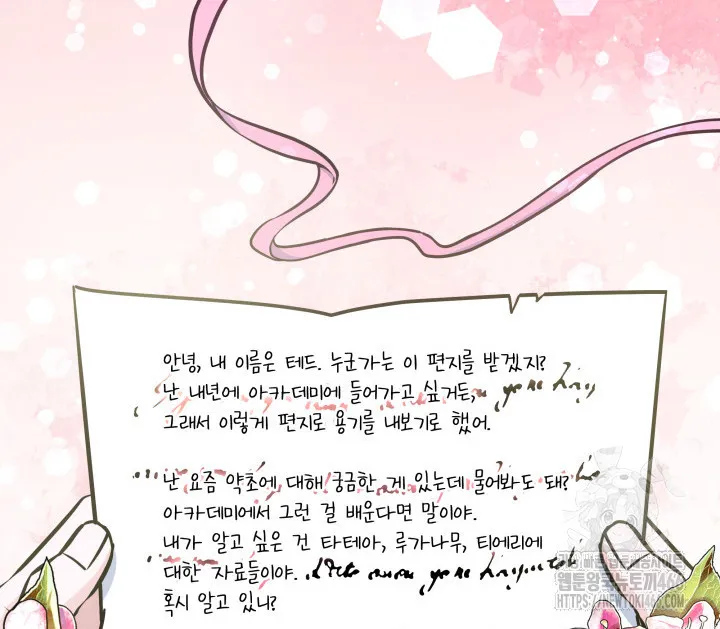 안녕, 내 이름은 테드. 누군가는 이 편지를 받겠지?
난 내년에 아카데미에 들어가고 싶거든,
그래서 이렇게 편지로 용기를 내보기로 했어.
난 요즘 약초에 대해 궁금한 게 있는데 물어봐도 돼?
아카데미에서 그런 걸 배운다면 말이야.
내가 알고 싶은 건 타테아, 루가나무, 티에리에
대한 자료들이야.
혹시 알고 있니?
웹툰왕국뉴토끼468
HTTPS://NEWTOKI468.COM